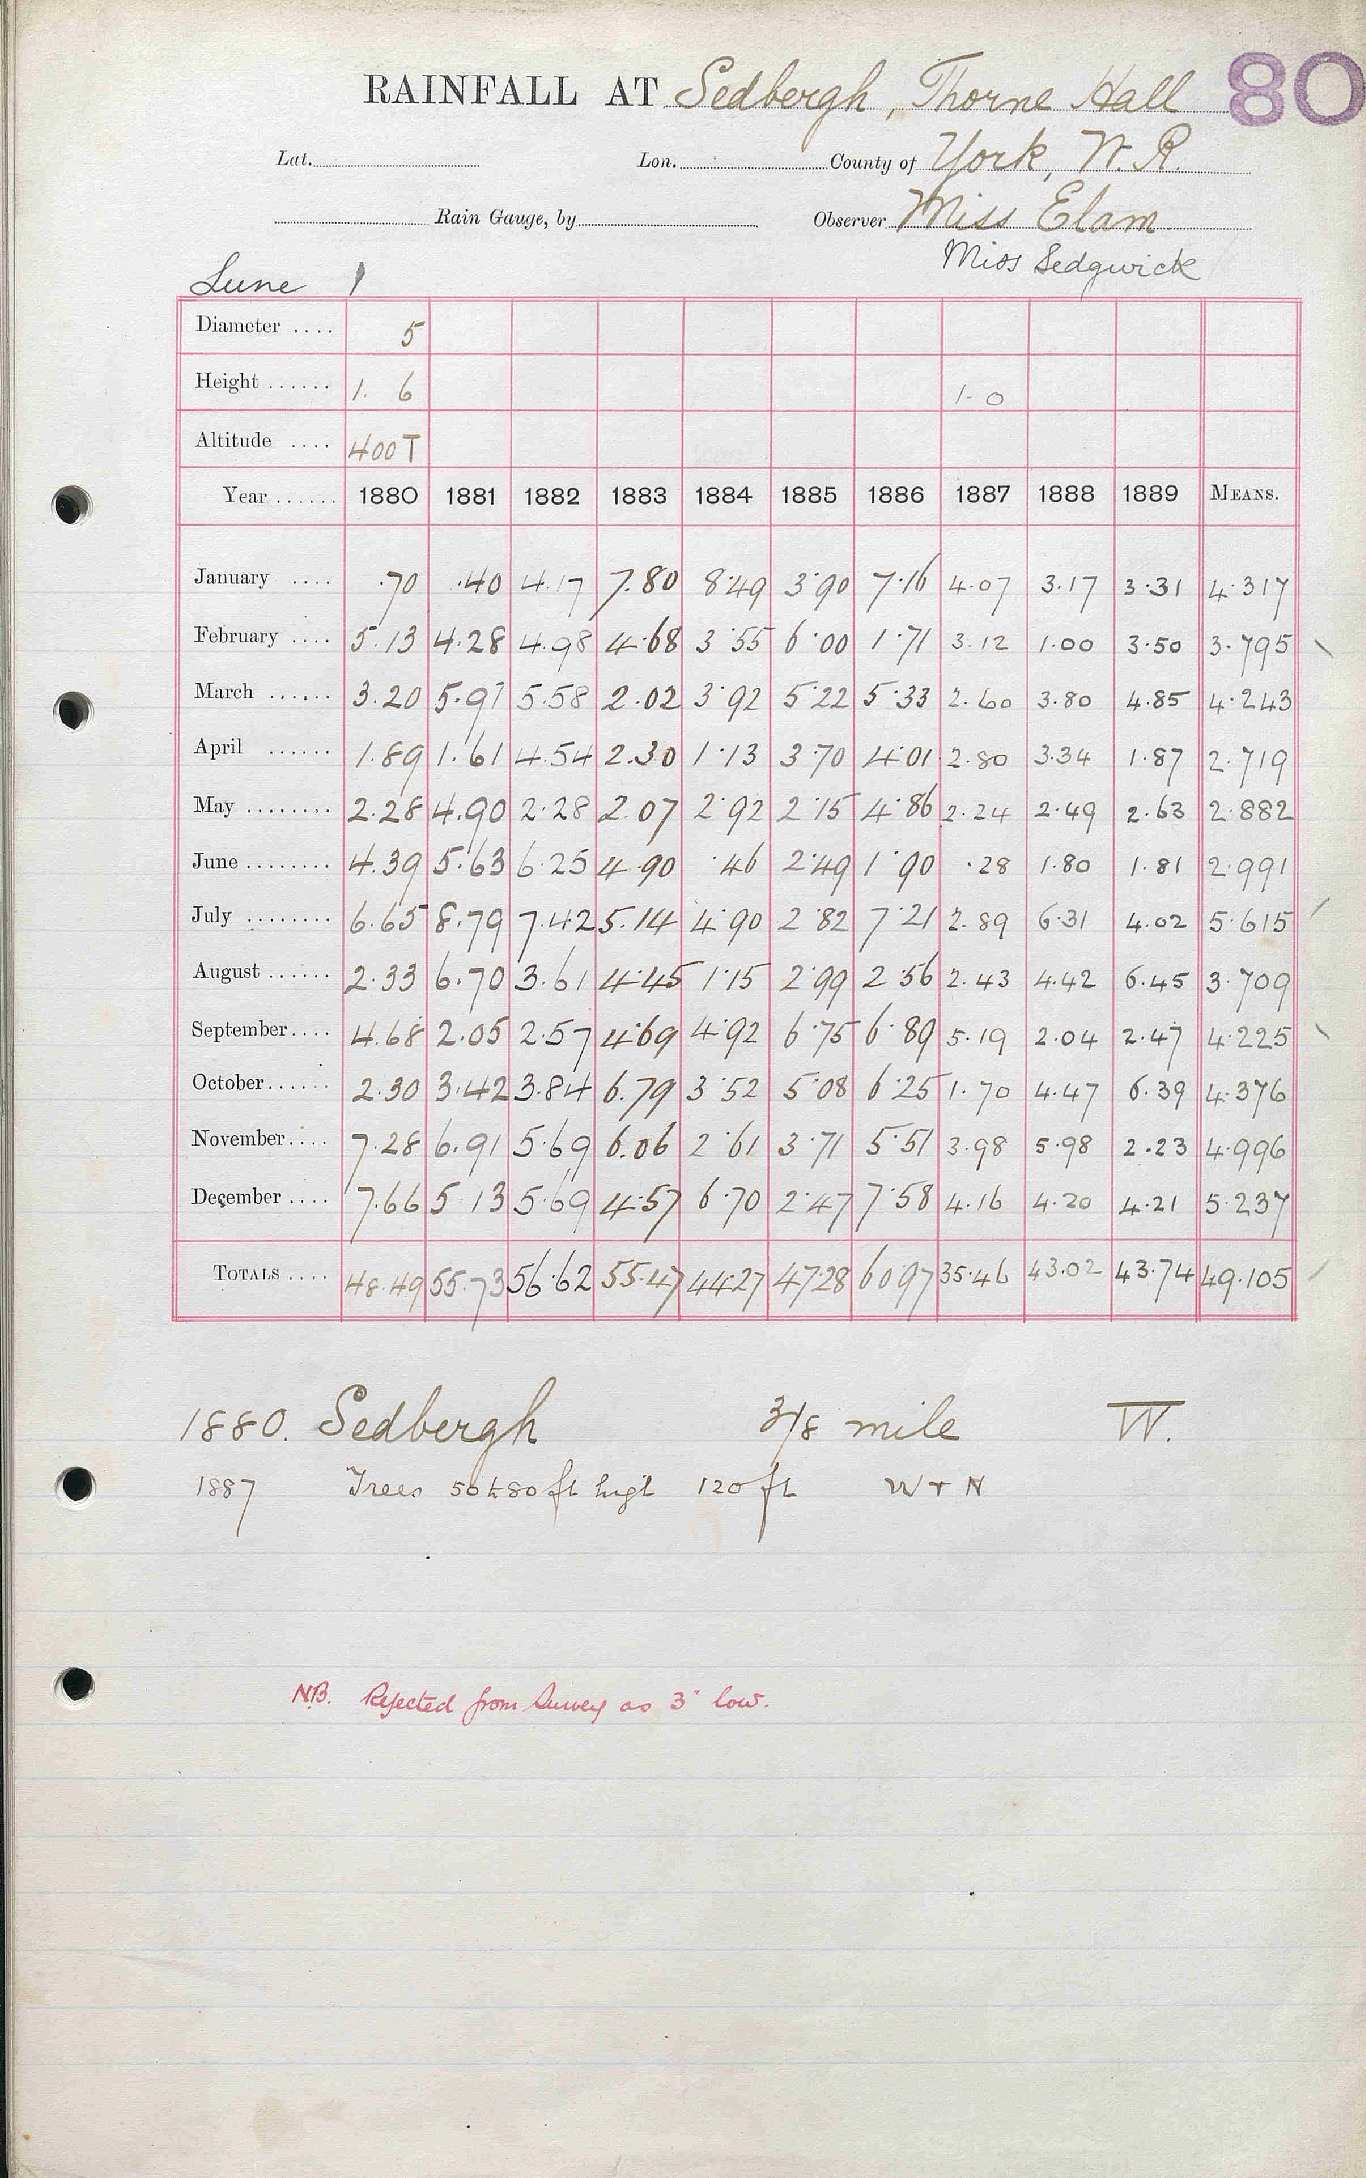 RAINFALL AT Sedbergh, Thorne Hall 80
Lat. Lon. County of York, W.R.
Rain Gauge, by Observer Miss Elam
Miss Sedgwick
Lune 1
Diameter .... 5
Height ...... 1. 6 1-0
Altitude .... 400T
Year ...... 1880 1881 1882 1883 1884 1885 1886 1887 1888 1889 MEANS.
January .... .70 .40 4.17 7.80 8.49 3.90 7.16 4.07 3.17 3.31 4.317
February .... 5.13 4.28 4.98 4.68 3.55 6.00 1.71 3.12 1.00 3.50 3.795
March ...... 3.20 5.91 5.58 2.02 3.92 5.22 5.33 2.60 3.80 4.85 4.243
April ...... 1.89 1.61 4.54 2.30 1.13 3.70 4.01 2.80 3.34 1.87 2.719
May ........ 2.28 4.90 2.28 2.07 2.92 2.15 4.86 2.24 2.49 2.63 2.882
June ........ 4.39 5.63 6.25 4.90 .46 2.49 1.90 .28 1.80 1.81 2.991
July ........ 6.65 8.79 7.42 5.14 4.90 2.82 7.21 2.89 6.31 4.02 5.615
August ...... 2.33 6.70 3.61 4.45 1.15 2.99 2.56 2.43 4.42 6.45 3.709
September .... 4.68 2.05 2.57 4.69 4.92 6.75 6.89 5.19 2.04 2.47 4.225
October ...... 2.30 3.42 3.84 6.79 3.52 5.08 6.25 1.70 4.47 6.39 4.376
November .... 7.28 6.91 5.69 6.06 2.61 3.71 5.51 3.98 5.98 2.23 4.996
December .... 7.66 5.13 5.69 4.57 6.70 2.47 7.58 4.16 4.20 4.21 5.237
TOTALS .... 48.49 55.73 56.62 55.47 44.27 47.28 60.97 35.46 43.02 43.74 49.105
1880. Sedbergh 3/8 mile W.
1887 Trees 50 to 80 ft high 120 ft W + N
N.B. Rejected from Survey as 3" low.